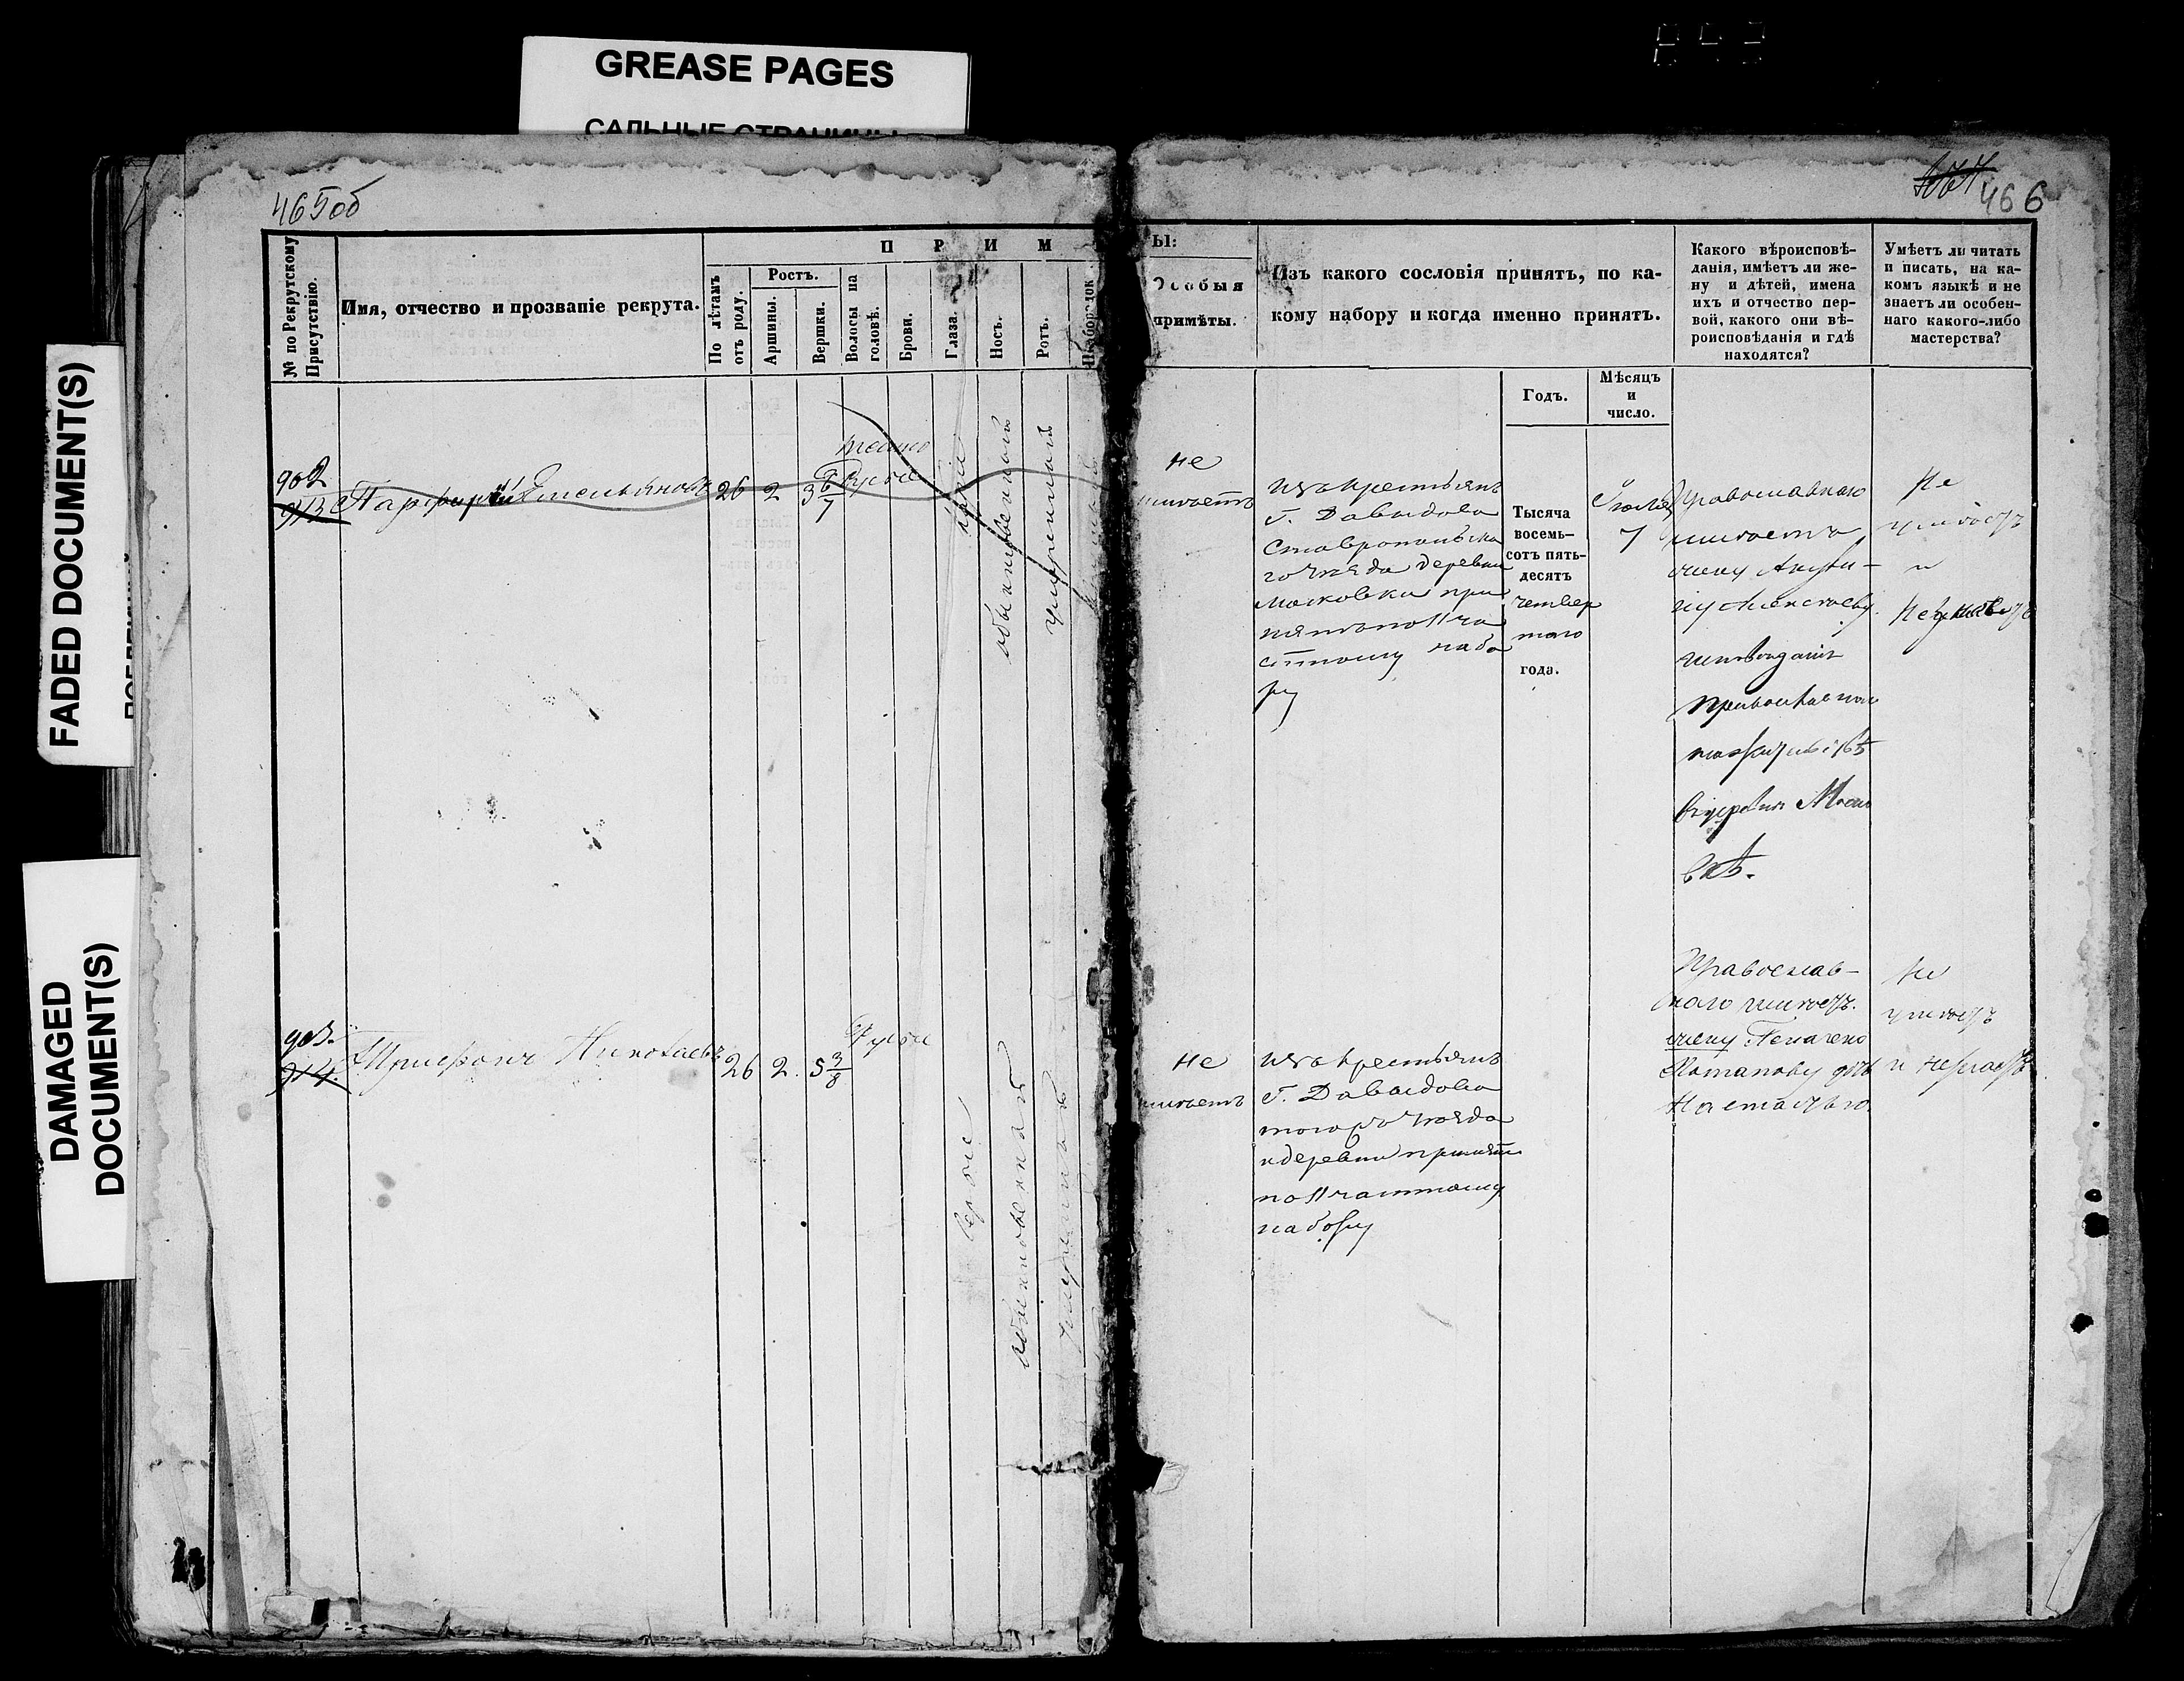 GREASE PAGES
САЛЬНЫЕ СТРАНИЦЫ
FADED DOCUMENT(S)
DAMAGED
DOCUMENT(S)
465об
466
№ по Рекрутскому
Присутствію.
Имя, отчество и прозваніе рекрута.
П Р И М
По лѣтамъ
отъ роду.
Ростъ.
Аршины.
Вершки.
Волосы на
головѣ.
Брови.
Глаза.
Носъ.
Ротъ.
Подбородок
Ы:
Особыя
примѣты.
Изъ какого сословія принятъ, по ка-
кому набору и когда именно принятъ.
Годъ.
Мѣсяцъ
и
число.
Какого вѣроисповѣ-
данія, имѣетъ ли же-
ну и дѣтей, имена
ихъ и отчество пер-
вой, какого они вѣ-
роисповѣданія и гдѣ
находятся?
Умѣетъ ли читать
и писать, на ка-
комъ языкѣ и не
знаетъ ли особен-
наго какого-либо
мастерства?
902
913
Парфирій Емельяновъ
26
2
3 6/7
темно
русые
каріе
обыкновенный
умеренный
не
имѣетъ
Изъ крестьянъ
Г. Давыдова
Ставропольска
го уѣзда деревни
Московки при
нятъ по II ча
стному набо
ру
Тысяча
восемь-
сотъ пять-
десятъ
четвер
таго
года.
Іюля
7
Православнаго
имѣетъ
жену Акули-
ну Алексѣеву
исповѣданія
православнаго
въ деревни Моско
вкѣ.
Не
умѣетъ
и
не знаетъ
903.
914.
Николаевъ
26
2.
5 3/8
Русые
серые
обыкновенный
умеренный
не
имѣетъ
Изъ крестьянъ
Г. Давыдова
того жъ уѣзда
и деревни принятъ
по II частному
набору
Православ-
наго имѣетъ
жену Пелагею
Потапову дочь
Настасью.
Не
умѣетъ
и не знаетъ